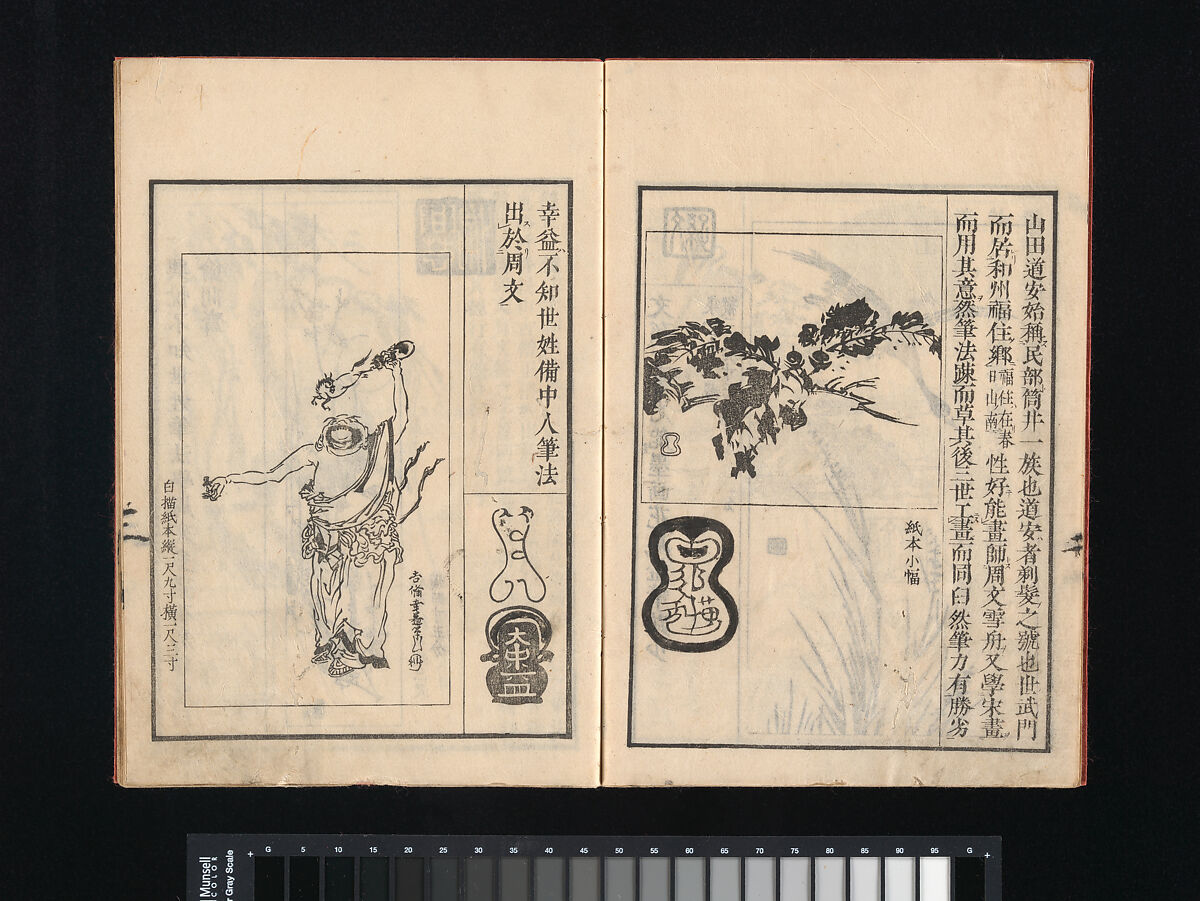 山田道安始稱民部筒井一族也道安者剃髮之號也世武門
而居和州福住鄉福住在春日山南性好能畫師周文雪舟又學宋畫
而用其意然筆法疎而草其後三世工畫而同臼然筆力有勝劣
紙本小幅
幸益不知世姓備中人筆法
出於周文
大中
益
白描紙本縱一尺九寸橫一尺三寸
Munsell
COLOR
r Gray Scale
G 5 10 15 20 25 30 35 40 45 50 55 60 65 70 75 80 85 90 95 G